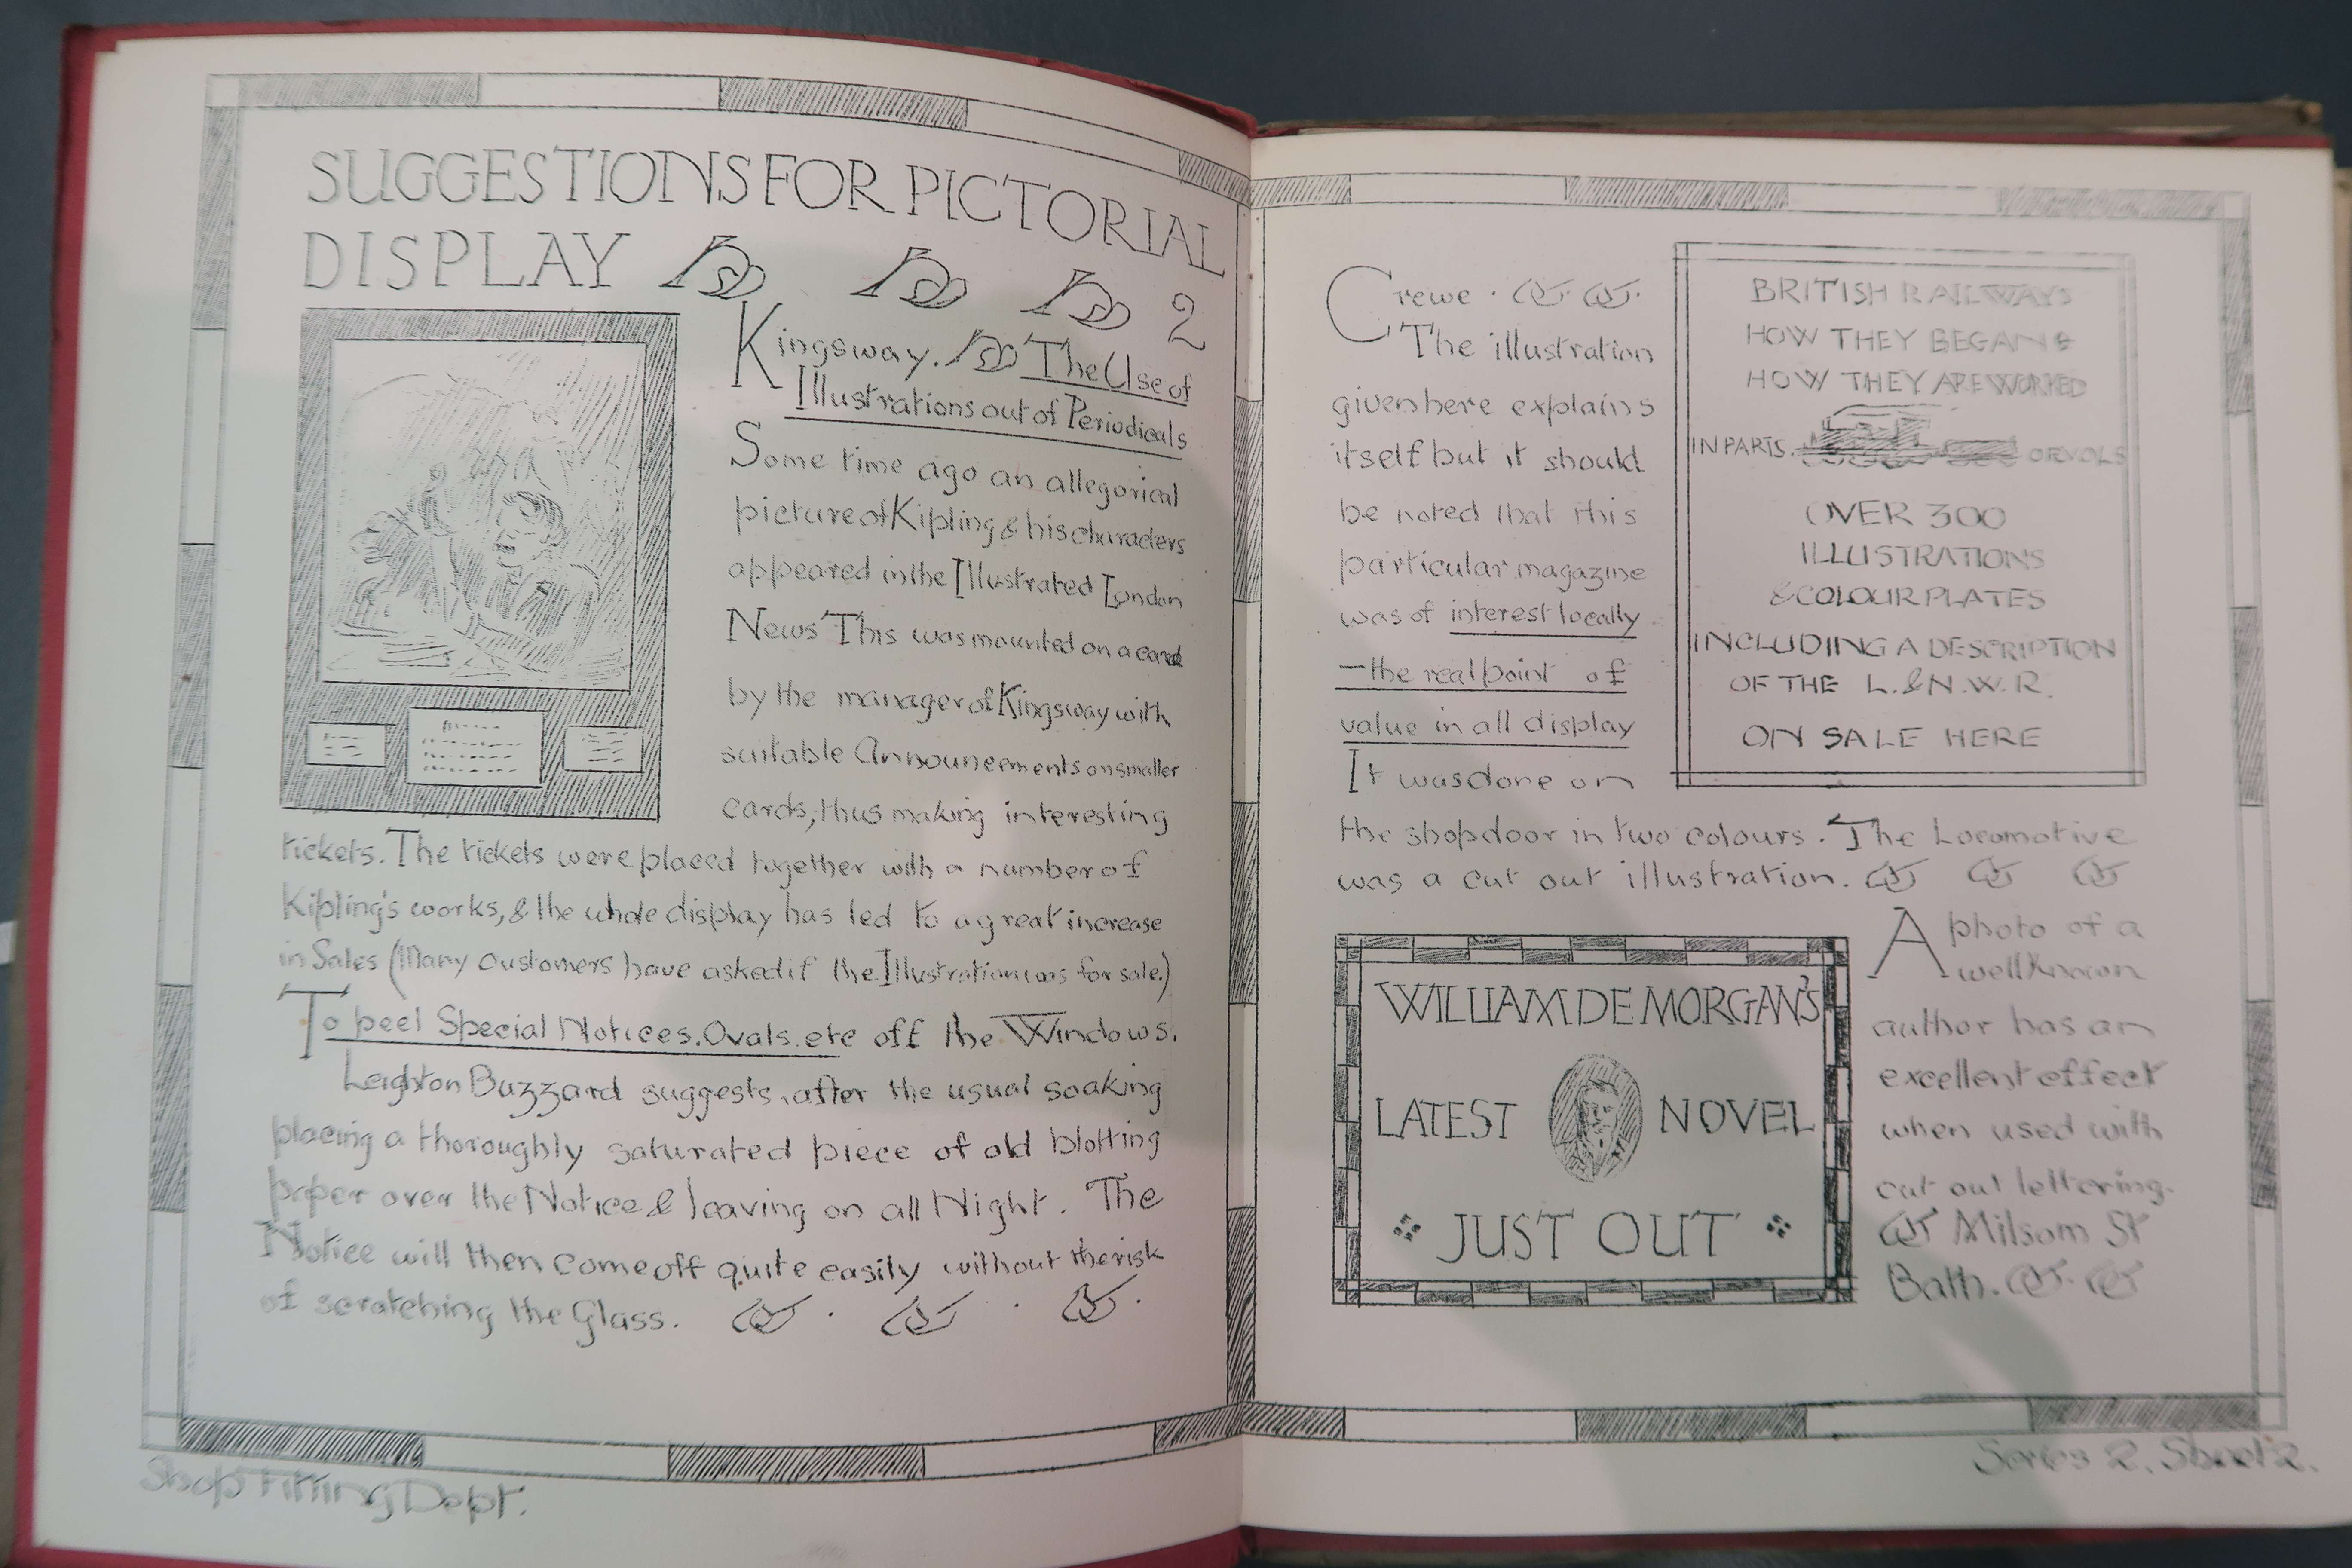 SUGGESTIONS FOR PICTORIAL
DISPLAY 2
Kingsway. The Use of
Illustrations out of Periodicals
Some time ago an allegorical
picture of Kipling & his characters
appeared in the Illustrated London
News This was mounted on a card
by the manager of Kingsway with
suitable Announcements on smaller
cards, thus making interesting
tickets. The tickets were placed together with a number of
Kipling's works, & the whole display has led to a great increase
in Sales (Many customers have asked if the Illustration was for sale.)
To peel Special Notices. Ovals. etc off the Windows.
Leighton Buzzard suggests, after the usual soaking
placing a thoroughly saturated piece of old blotting
paper over the Notice & leaving on all Night. The
Notice will then come off quite easily without the risk
of scratching the Glass.
Shop Fitting Dept.
Crewe.
The illustration
given here explains
itself but it should
be noted that this
particular magazine
was of interest locally
—the real point of
value in all display
It was done on
the shop door in two colours. The Locomotive
was a cut out illustration.
BRITISH RAILWAYS
HOW THEY BEGAN &
HOW THEY ARE WORKED
IN PARTS. OR VOLS
OVER 300
ILLUSTRATIONS
& COLOUR PLATES
INCLUDING A DESCRIPTION
OF THE L. & N. W. R.
ON SALE HERE
WILLIAM DE MORGAN'S
LATEST NOVEL
JUST OUT
A photo of a
well known
author has an
excellent effect
when used with
cut out lettering.
Milsom St
Bath.
Series 2. Sheet 2.